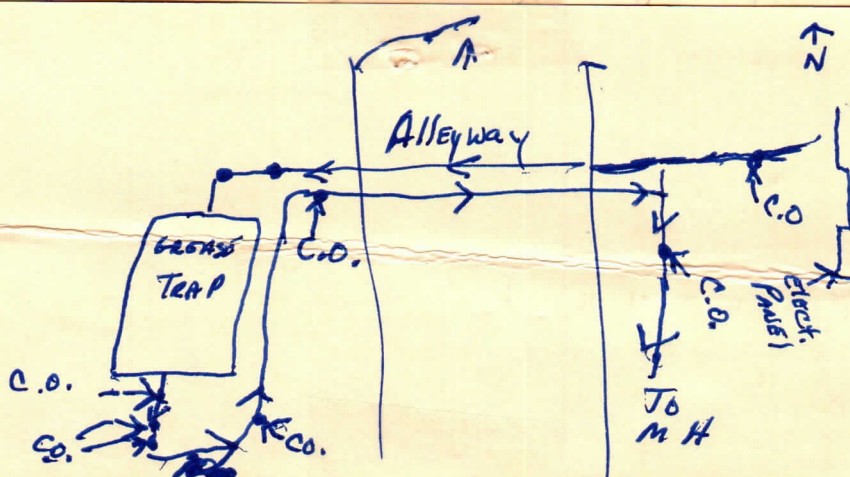 N
Alleyway
C.O
GREASE
TRAP
C.O.
C.O.
ELECT.
PANEL
C.O.
CO.
CO.
TO
M H